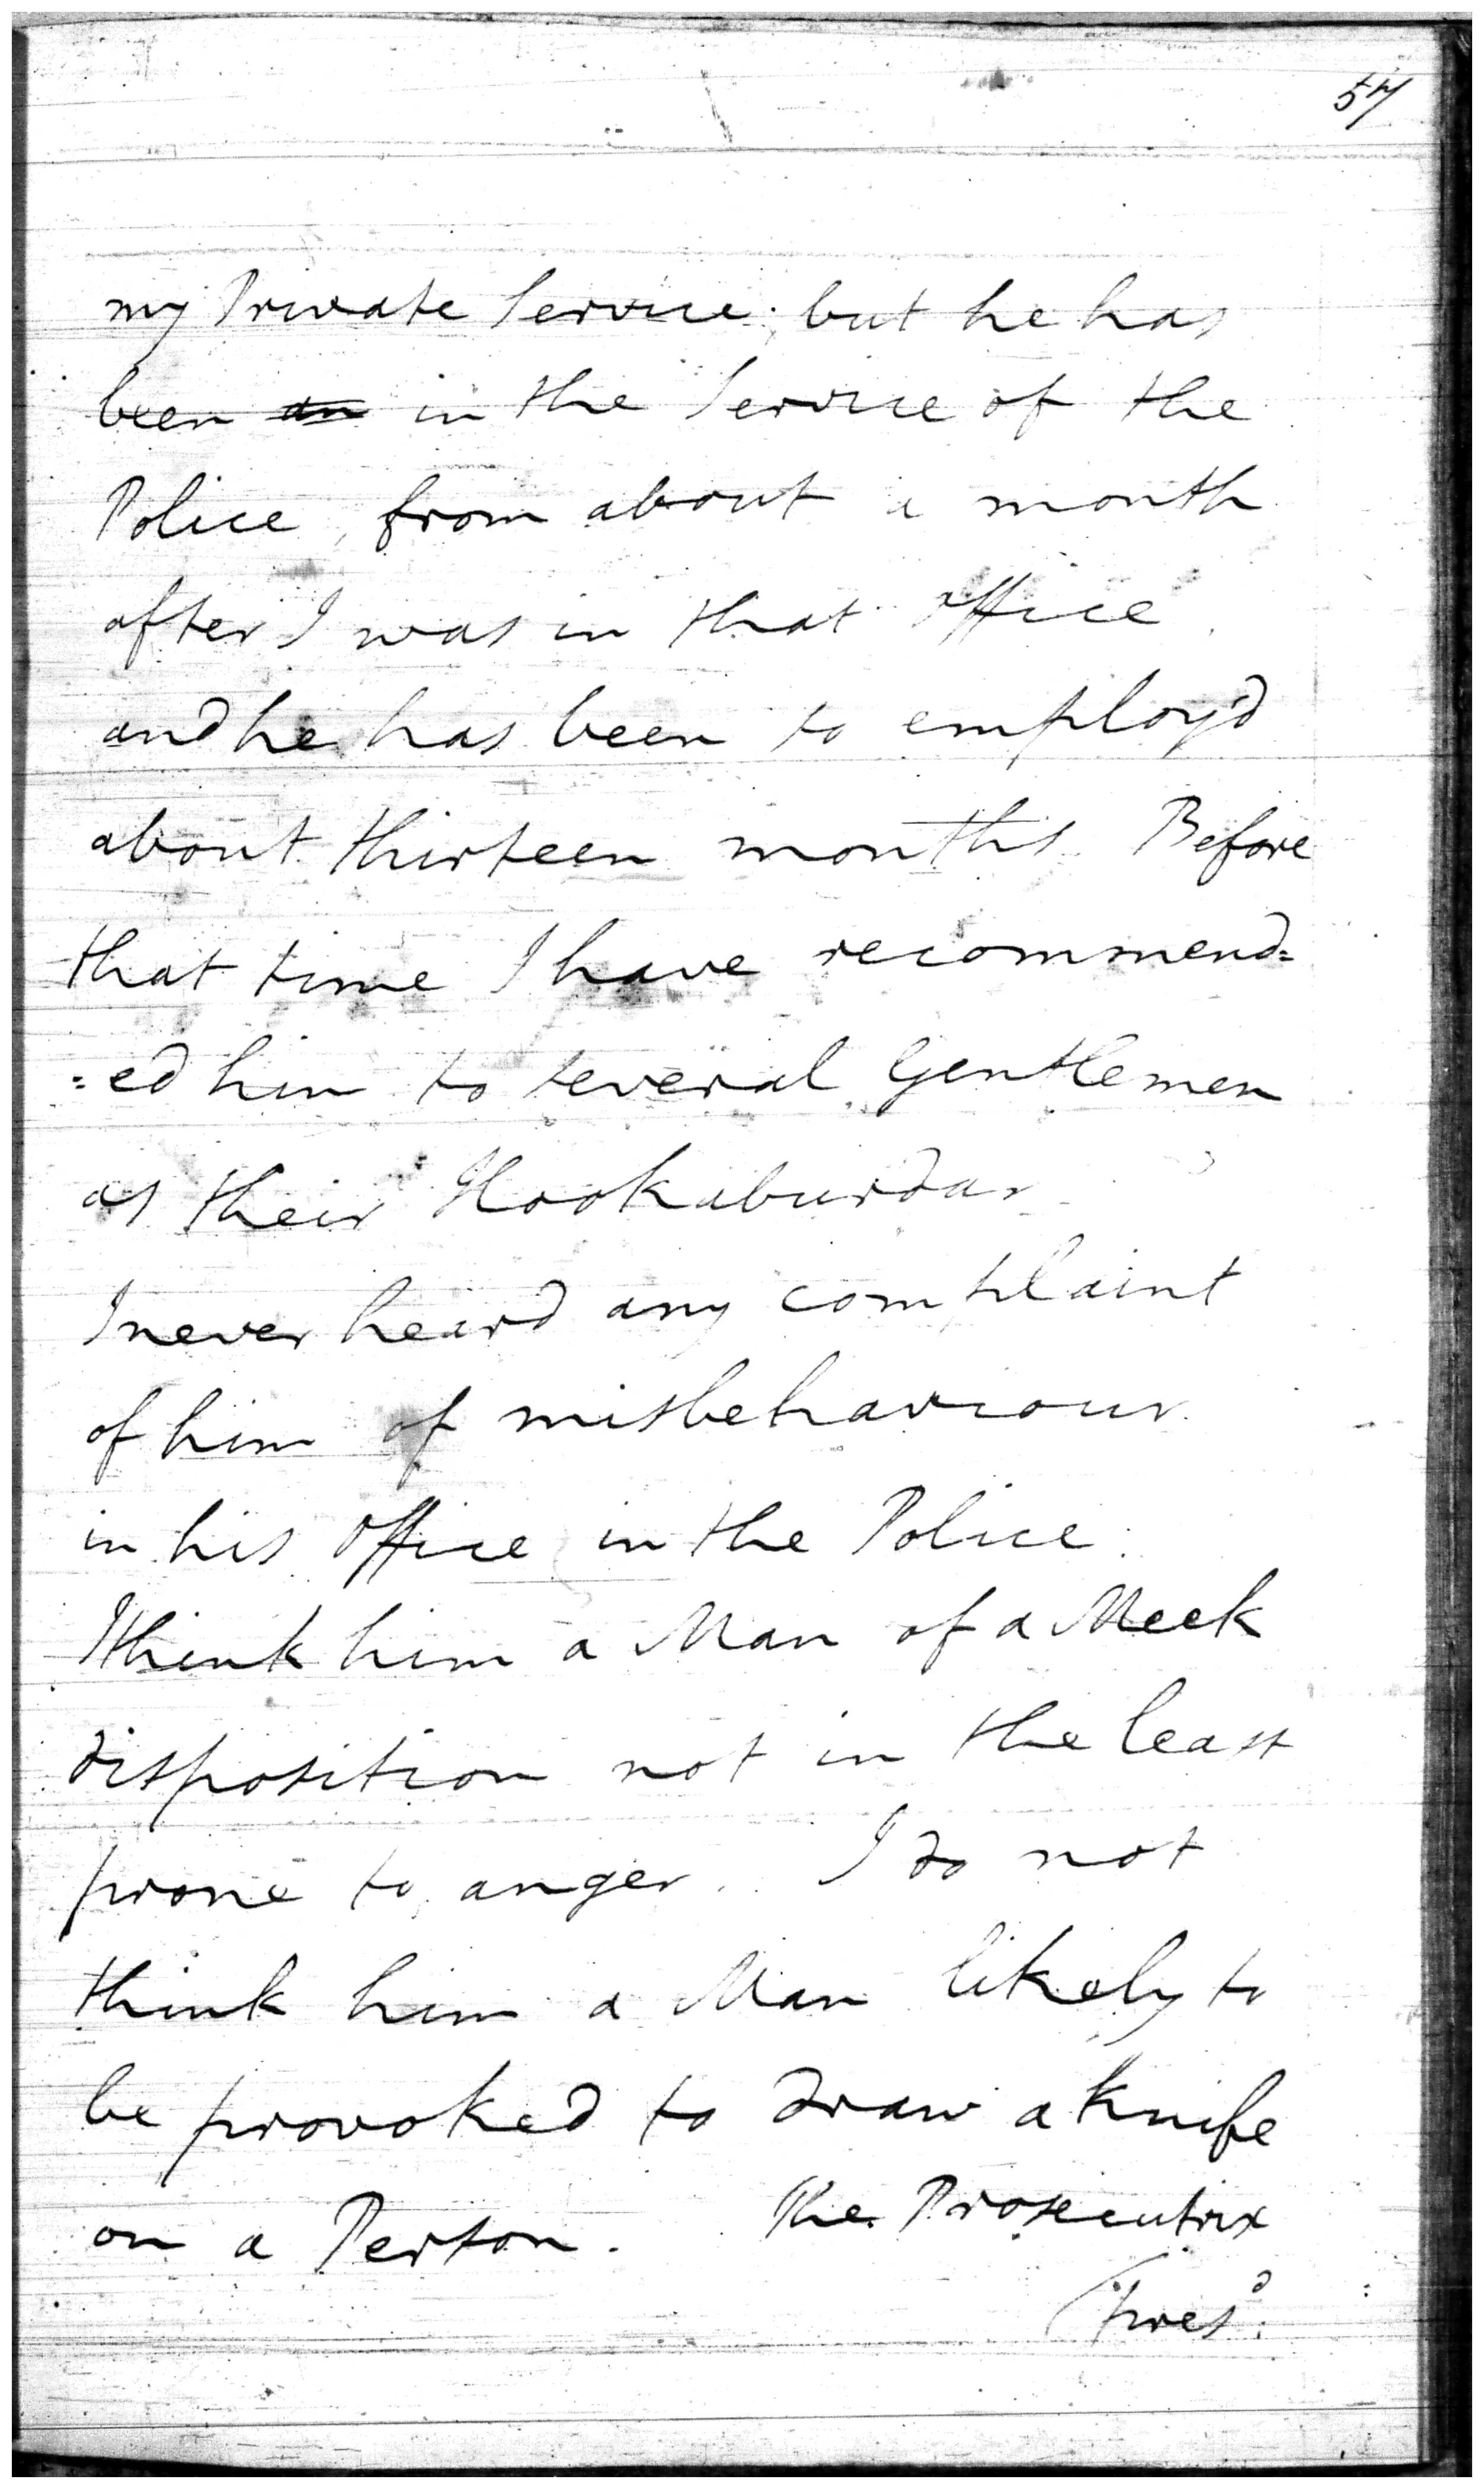 57
my Private Service; but he has
been an in the Service of the
Police, from about a month
after I was in that Office.
and he has been so employ'd
about thirteen months. Before
that time I have recommend=
=ed him to several Gentlemen
as their Hookaburdar
I never heard any complaint
of him of misbehaviour
in his Office in the Police.
I think him a Man of a Meek
disposition not in the least
prone to anger. I do not
think him a Man likely to
be provoked to draw a knife
on a Person. The Prosecutrix